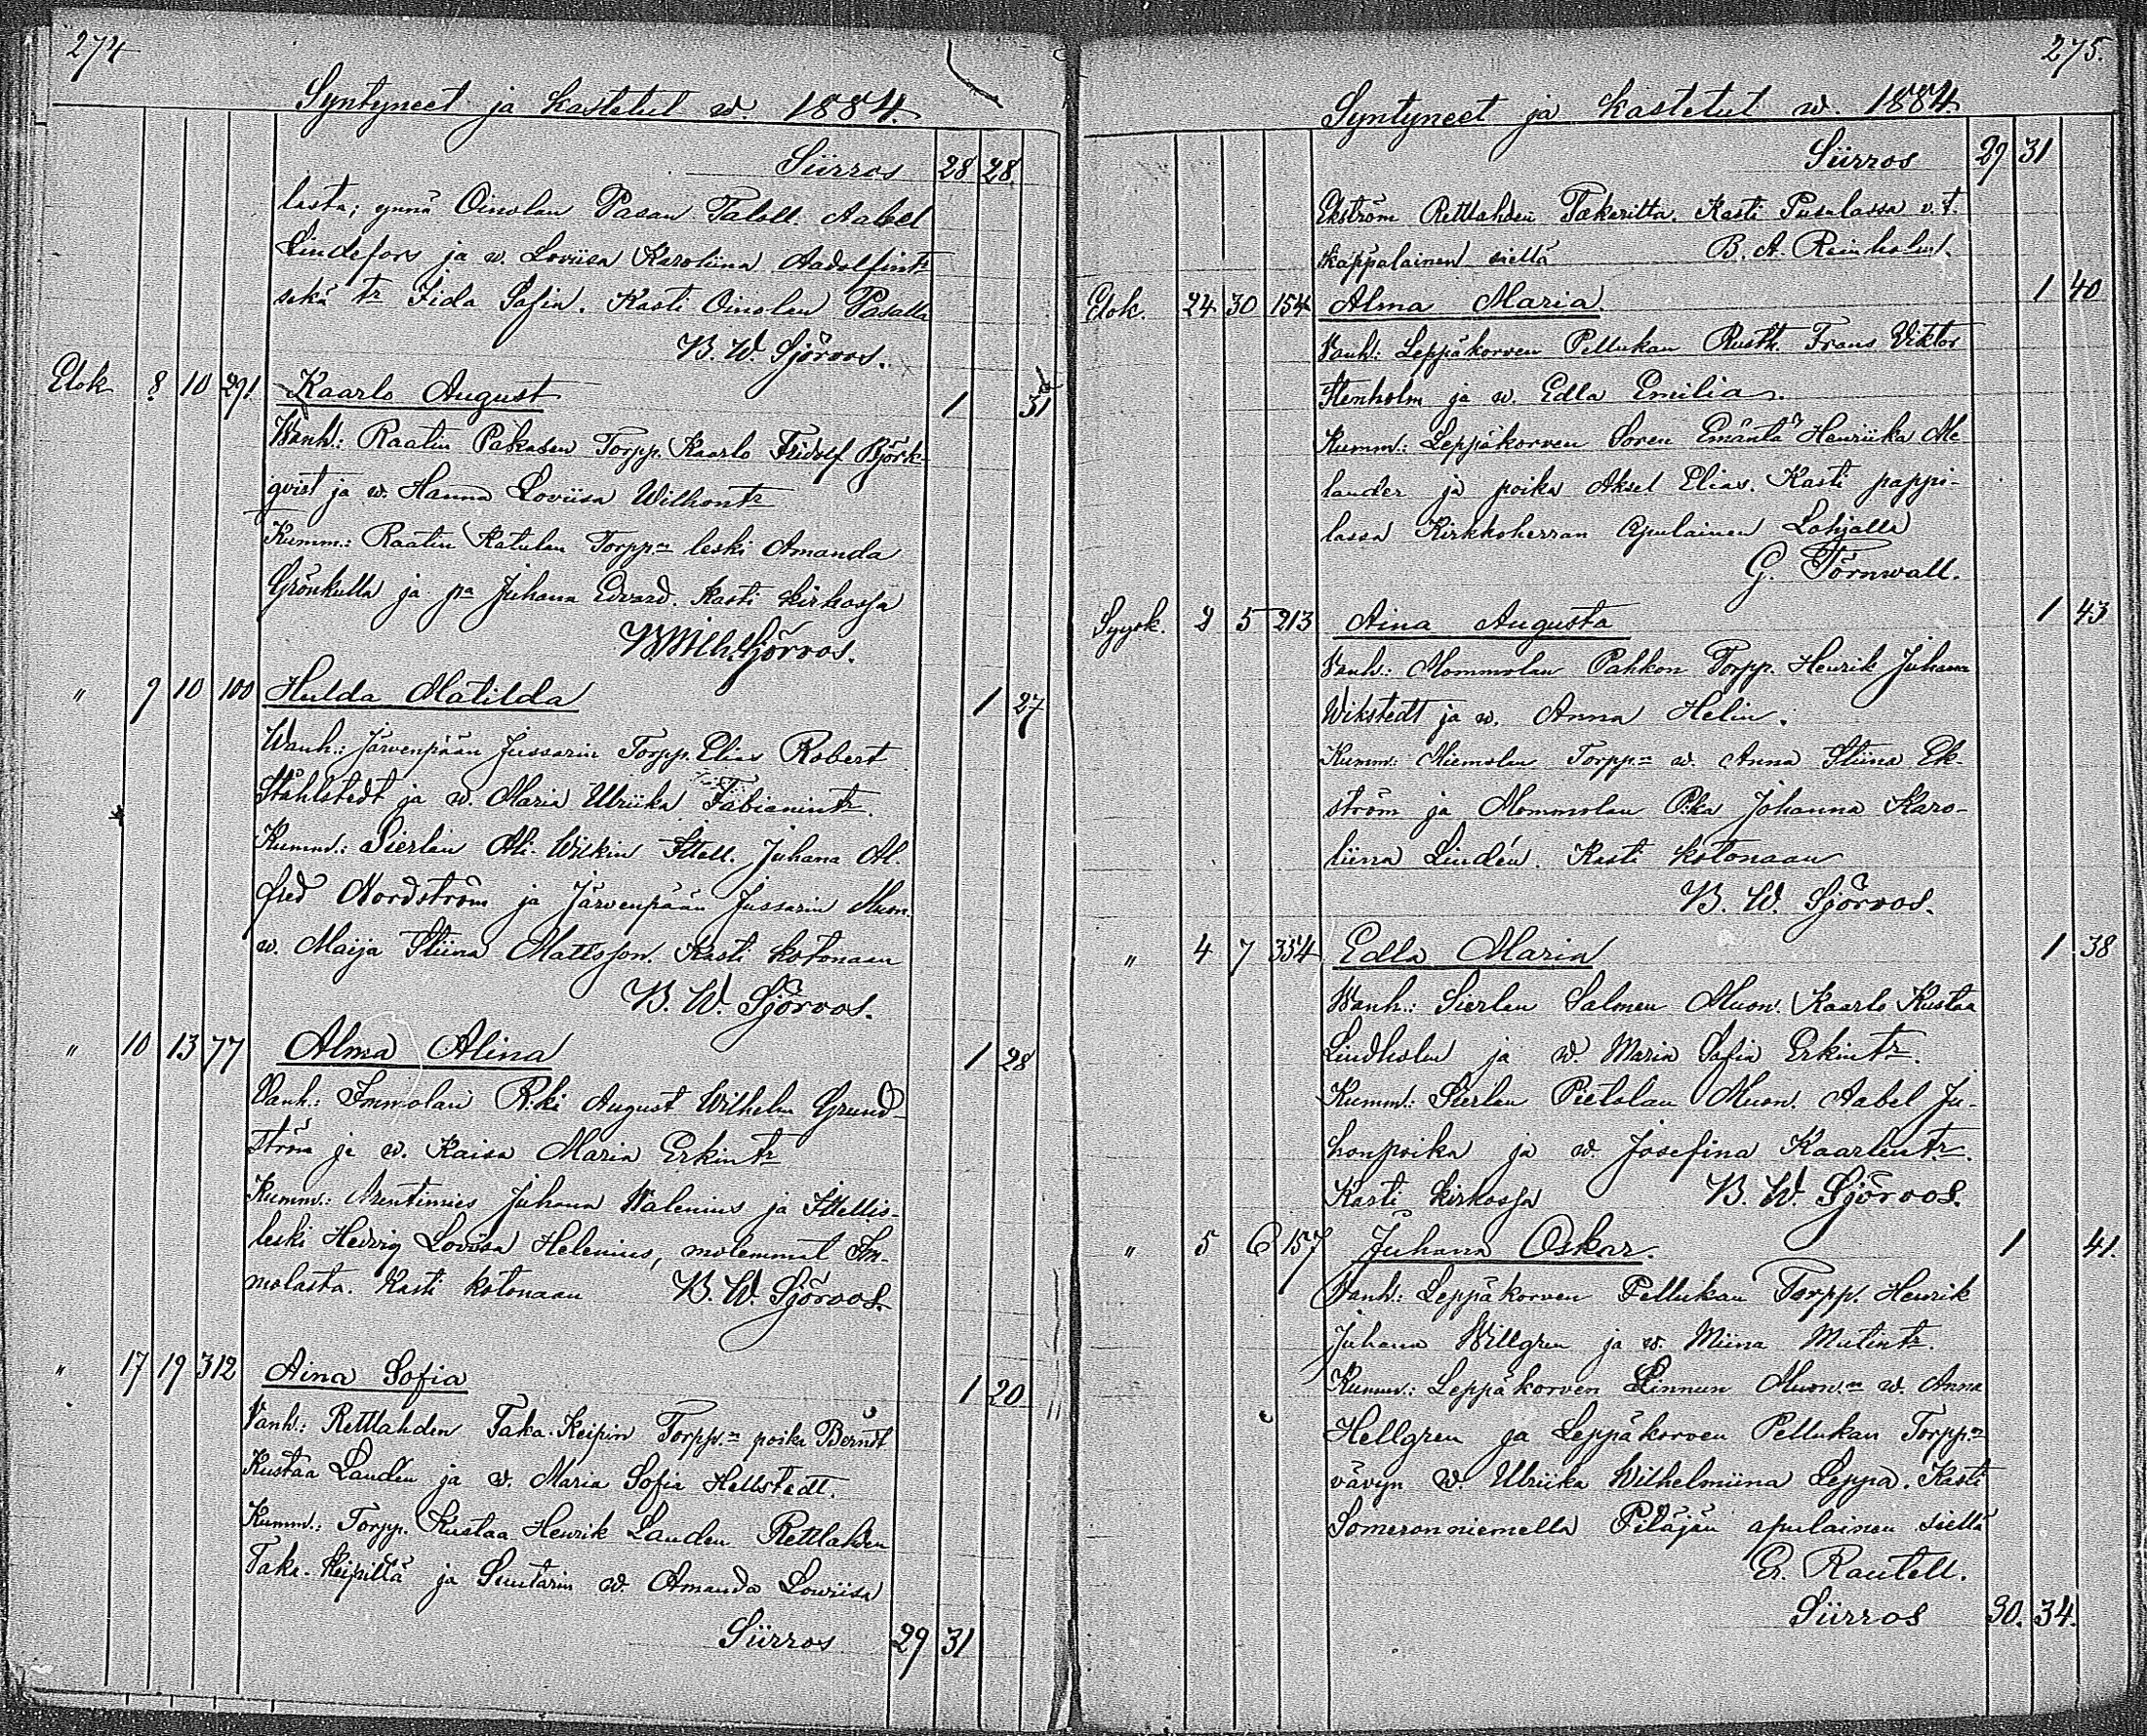 274
Syntyneet ja kastetut w. 1884.
Siirros 28 28
lasta; ynnä Oinolan Pasan Taloll. Aabel
Lindefors ja w. Loviisa Karoliina Aadolfintr
sekä tr Fida Sofia. Kasti Oinolan Pasalla
B. W. Sjöroos.
Elok 8 10 291 Kaarlo August 1 31
Wanh: Raatin Pakasen Torpp. Kaarlo Fridolf Björk-
qvist ja w. Hanna Loviisa Wilhontr
Kumm: Raatin Katulan Torppn leski Amanda
Grönkulla ja pa Juhana Edvard. Kasti kirkossa
B. Wilh. Sjöroos.
" 9 10 100 Hulda Matilda 1 27
Wanh.: Järvenpään Jussarin Torpp. Elias Robert
Ståhlstedt ja w. Maria Ulriika Fabianintr.
Kumm.: Sierlän Ali-Wilkin Ittell. Juhana Al-
fred Nordström ja Järvenpään Jussarin Muon.
w. Maija Stiina Mattsson. Kasti kotonaan
B. W. Sjöroos.
" 10 13 77 Alma Alina 1 28
Vanh: Immolan R:ki August Wilhelm Grund-
ström ja w. Kaisa Maria Erkintr
Kumm.: Arentimies Juhana Walenius ja Ittellis-
leski Hedvig Lovisa Helenius, molemmat Im-
molasta. Kasti kotonaan B. W. Sjöroos.
" 17 19 312 Aina Sofia 1 20
Vanh.: Rettlahden Taka-Keipin Torpp.n poika Berndt
Kustaa Landén ja w. Maria Sofia Hellstedt.
Kumm.: Torpp. Kustaa Henrik Landen Rettlahden
Taka-Keipiltä ja Suutarin w. Amanda Lowiisa
Siirros 29 31
275.
Syntyneet ja kastetut w. 1884.
Siirros 29 31
Ekström Rettlahden Takeritta. Kasti Pusulassa v.t.
kappalainen siellä B. A. Reinholm.
Elok. 24 30 154 Alma Maria. 1 40
Vanh: Leppäkorven Pellukan Rusth. Frans Viktor
Stenholm ja w. Edla Emilia.
Kumm.: Leppäkorven Soren Emäntä Henriika Me-
lander ja poika Aksel Elias. Kasti pappi-
lassa Kirkkoherran Apulainen Lohjalla
G. Törnwall.
Syysk. 2 5 213 Aina Augusta 1 43
Vanh: Mommolan Pahkon Torpp. Henrik Juhana
Wikstedt ja w. Anna Helin.
Kumm: Niemolan Torpp.n w. Anna Stiina Ek-
ström ja Mommolan P:ka Johanna Karo-
liina Lindén. Kasti kotonaan
B. W. Sjöroos.
" 4 7 354 Edla Maria 1 38
Wanh: Sierlan Salmen Muon. Kaarlo Kustaa
Lindholm ja w. Maria Sofia Erkintr.
Kumm.: Sierlan Pietolan Muon. Aabel Ju-
honpoika ja w Josefina Kaarlentr.
Kasti kirkossa B. W. Sjöroos.
" 5 6 157 Juhana Oskar. 1 41.
Vanh: Leppäkorven Pellukan Torpp. Henrik
Juhana Willgren ja w. Miina Matintr.
Kumm.: Leppäkorven Linnun Muon.n w. Anna
Hellgren ja Leppäkorven Pellukan Torpp.n
vävyn w. Ulriika Wilhelmiina Leppä. Kasti
Someronniemella Pitäjän apulainen siellä
Er. Rautell.
Siirros 30. 34.